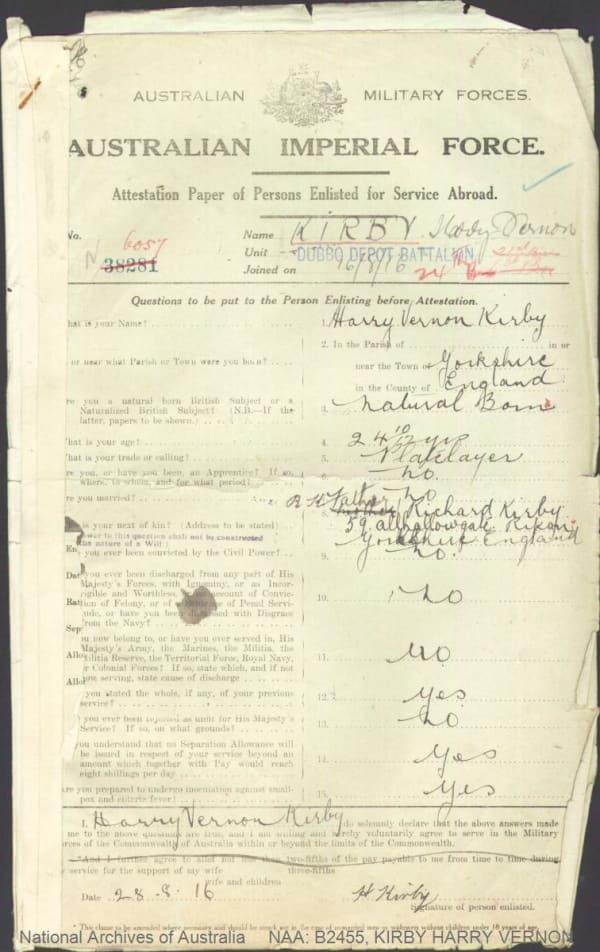 AUSTRALIAN MILITARY FORCES.
AUSTRALIAN IMPERIAL FORCE.
Attestation Paper of Persons Enlisted for Service Abroad.
No. 6057 Name KIRBY Harry Vernon
N 38281 Unit DUBBO DEPOT BATTALION
Joined on 16/8/16 24th
Questions to be put to the Person Enlisting before Attestation.
hat is your Name? 1. Harry Vernon Kirby
2. In the Parish of in or
or near what Parish or Town were you born? near the Town of Yorkshire
in the County of England
re you a natural born British Subject or a 3. Natural Born
Naturalized British Subject? (N.B.—If the
latter, papers to be shown.)
hat is your age? 4. 24 10/12 yrs
hat is your trade or calling? 5. Platelayer
re you, or have you been, an Apprentice? If so, 6. no.
where, to whom, and for what period?
re you married? 7. no
R K Father
8. Richard Kirby
is your next of kin? (Address to be stated) 59 Allhallowgate Ripon
wer to this question shall not be construed Yorkshire England
the nature of a Will)
En you ever been convicted by the Civil Power? 9. no.
Dat you ever been discharged from any part of His
Majesty's Forces, with Ignominy, or as Incor-
rigible and Worthless, account of Convic-
Rati tion of Felony, or of of Penal Servi- 10. no
tude, or have you been with Disgrace
from the Navy?
Sep
u now belong to, or have you ever served in, His
Majesty's Army, the Marines, the Militia, the
Allo Militia Reserve, the Territorial Force, Royal Navy, 11. No
or Colonial Forces? If so, state which, and if not
Allo now serving, state cause of discharge
you stated the whole, if any, of your previous 12. yes
service?
you ever been rejected as unfit for His Majesty's 13. no
Service? If so, on what grounds?
you understand that no Separation Allowance will
be issued in respect of your service beyond an 14. yes
amount which together with Pay would reach
eight shillings per day
re you prepared to undergo inoculation against small- 15. Yes
pox and enteric fever?
I, Harry Vernon Kirby do solemnly declare that the above answers made
me to the above questions are true, and I am willing and hereby voluntarily agree to serve in the Military
orces of the Commonwealth of Australia within or beyond the limits of the Commonwealth.
*And I further agree to allot not less than two-fifths of the pay payable to me from time to time during
three-fifths
service for the support of my wife
wife and children
Date 28.8.16 H Kirby
signature of person enlisted.
National Archives of Australia NAA: B2455, KIRBY HARRY VERNON